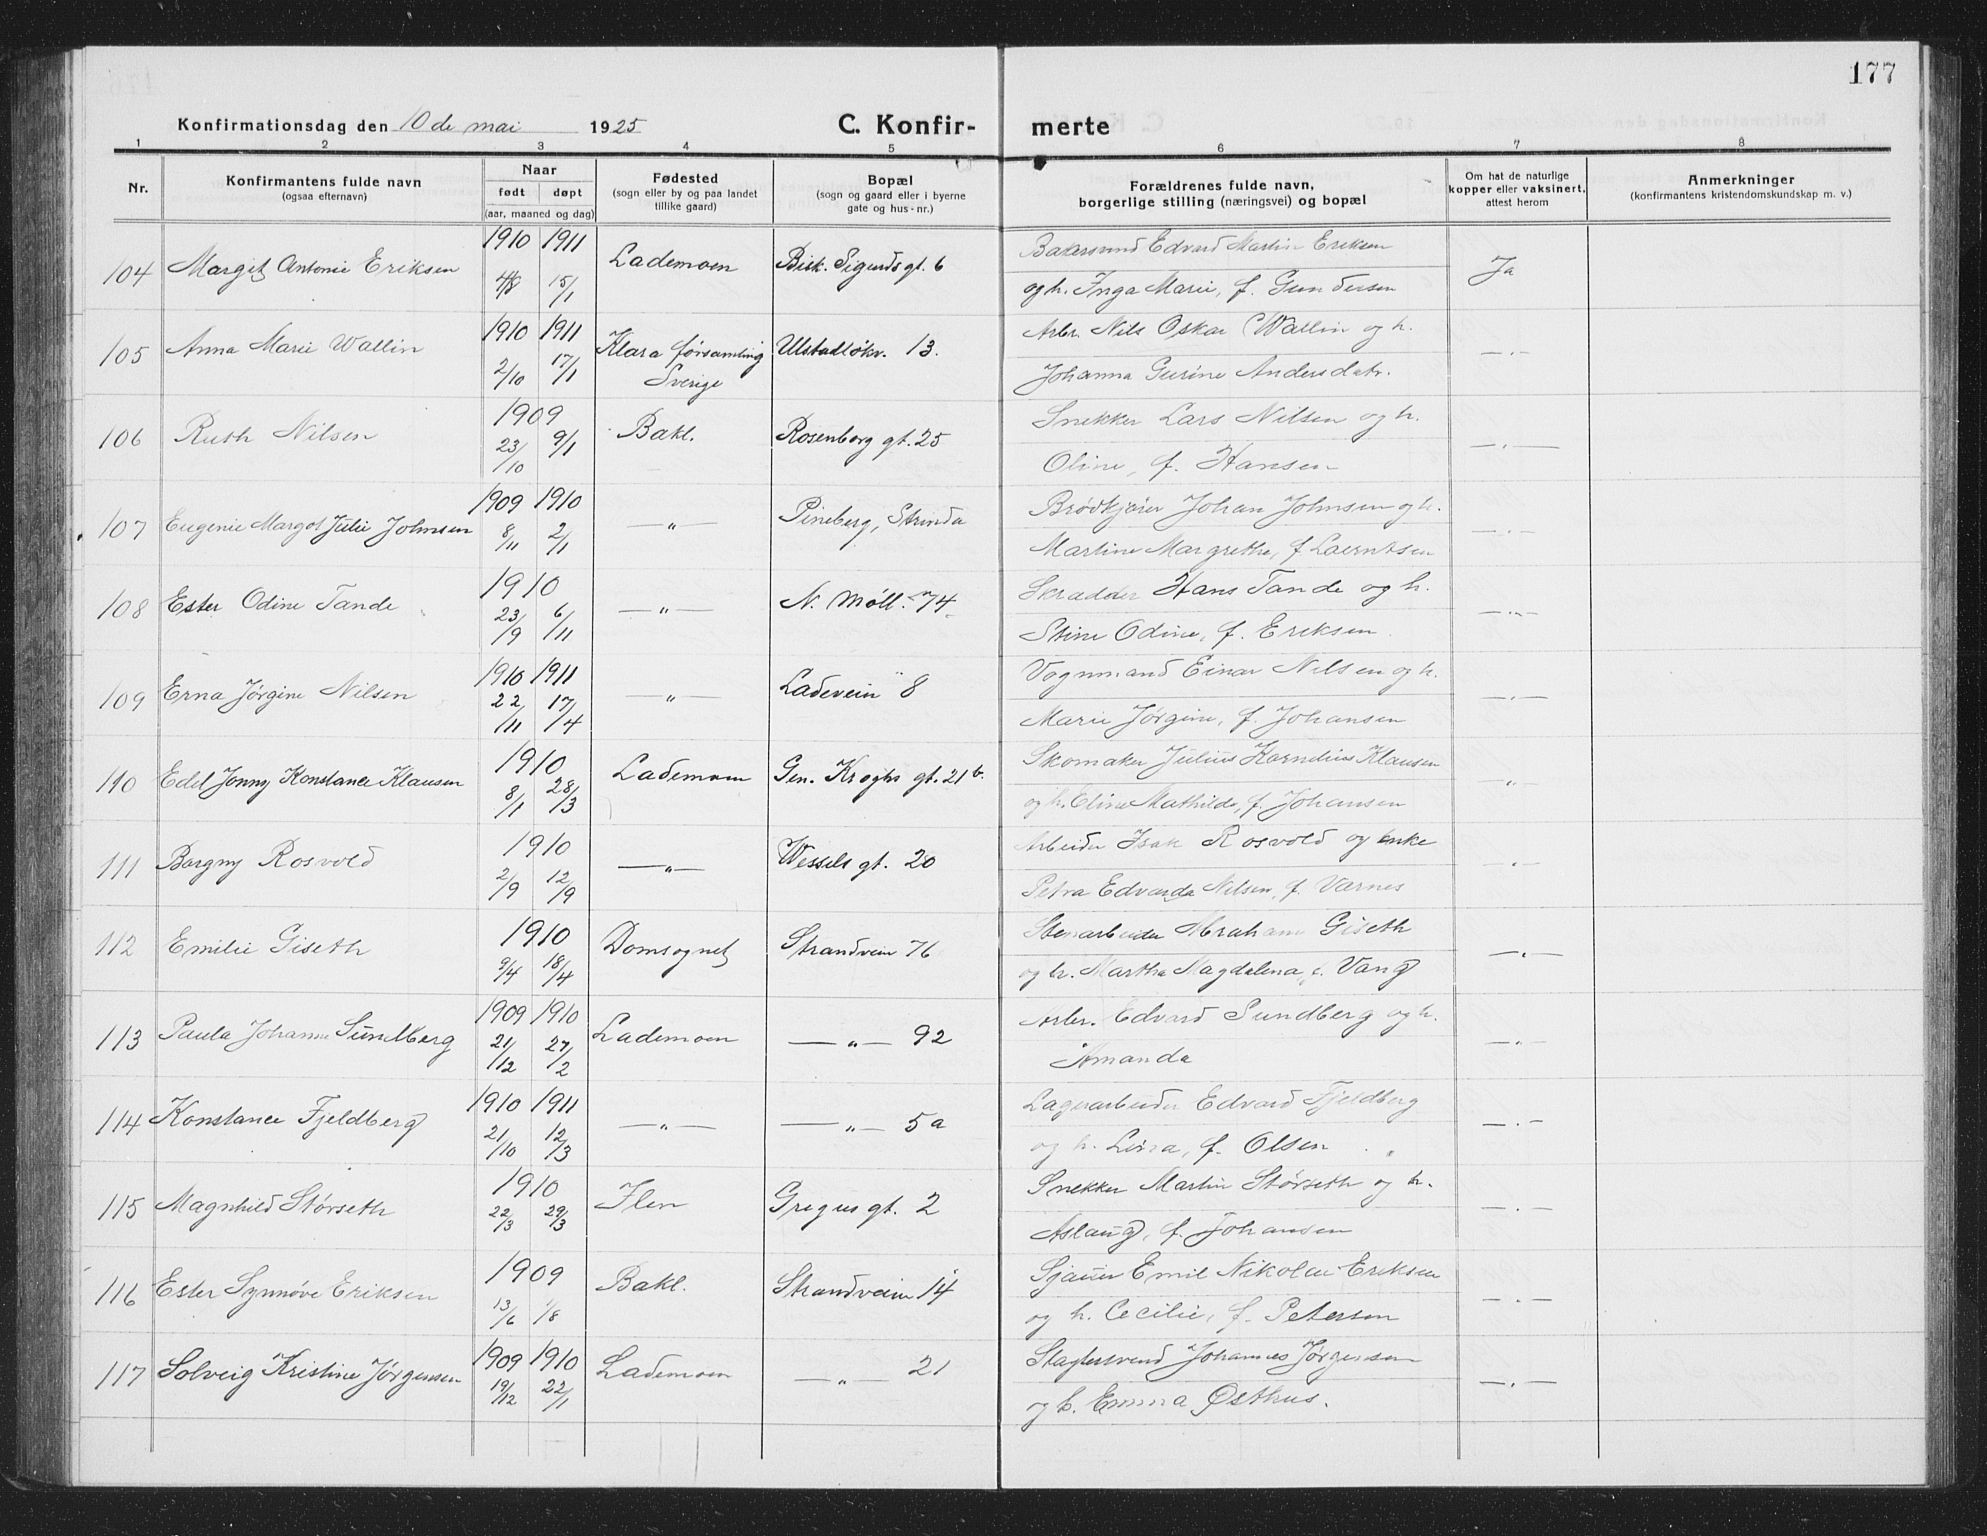 177
Konfirmationsdag den 10 de mai 1925 C. Konfir- merte
1 2 3 4 5 6 7 8
Nr. Konfirmantens fulde navn (ogsaa efternavn) Naar født døpt (aar, maaned og dag) Fødested (sogn eller by og paa landet tillike gaard) Bopæl (sogn og gaard eller i byerne gate og hus-nr.) Forældrenes fulde navn, borgerlige stilling (næringsvei) og bopæl Om hat de naturlige kopper eller vaksinert, attest herom Anmerkninger (konfirmantens kristendomskundskap m. v.)
104 Margit Antonie Eriksen 1910 4/8 1911 15/1 Lademoen Bisk. Sigurds gt. 6 Bakersvend Edvard Martin Eriksen
og h. Inga Marie, f. Gundersen Ja
105 Anna Marie Wallin 1910 2/10 1911 17/1 Klara församling Sverige Ulstadløkv. 13. Arbr. Nils Oskar Wallin og h.
Johanna Gurine Andersdatr. —〃—
106 Ruth Nilsen 1909 23/10 9/1 Bakl. Rosenborg gt. 25 Snekker Lars Nilsen og h.
Oline, f. Hansen —〃—
107 Eugenie Margot Julie Johnsen 1909 8/11 1910 2/1 —〃— Pineberg, Strinda Brødkjører Johan Johnsen og h.
Martine Margrethe, f. Laerntsen —〃—
108 Ester Odine Tande 1910 23/9 6/11 —〃— N. Møll. 74 Skrædder Hans Tande og h.
Stine Odine, f. Eriksen —〃—
109 Erna Jørgine Nilsen 1910 22/11 1911 17/4 —〃— Ladevein 8 Vognmand Einar Nilsen og h.
Marie Jørgine, f. Johansen —〃—
110 Edel Jonny Konstance Klausen 1910 8/1 28/3 Lademoen Gen. Kroghs gt. 21 b. Skomaker Julius Kornelius Klausen
og h. Eline Mathilde, f. Johansen —〃—
111 Borgny Rosvold 1910 2/9 12/9 —〃— Wessels gt. 20 Arbeider Isak Rosvold og enke
Petra Edvarda Nilsen, f. Værnes —〃—
112 Emilie Giseth 1910 9/4 18/4 Domsognet Strandvein 76 Stenarbeider Abraham Giseth
og h. Martha Magdalena, f. Vang —〃—
113 Paula Johanne Sundberg 1909 21/12 1910 27/2 Lademoen —〃— 92 Arbr. Edvard Sundberg og h.
Amanda —〃—
114 Konstance Fjeldberg 1910 21/10 1911 12/3 —〃— —〃— 5a Lagerarbeider Edvard Fjeldberg
og h. Lina, f. Olsen —〃—
115 Magnhild Størseth 1910 22/3 29/3 Ilen Gregus gt. 2 Snekker Martin Størseth og h.
Aslaug, f. Johansen —〃—
116 Ester Synnøve Eriksen 1909 13/6 1/8 Bakl. Strandveien 14 Sjauer Emil Nikolai Eriksen
og h. Cecilie, f. Petersen —〃—
117 Solveig Kristine Jørgensen 1909 19/12 1910 22/1 Lademoen —〃— 21 Slagtersvend Johannes Jørgensen
og h. Emma Østhus. —〃—